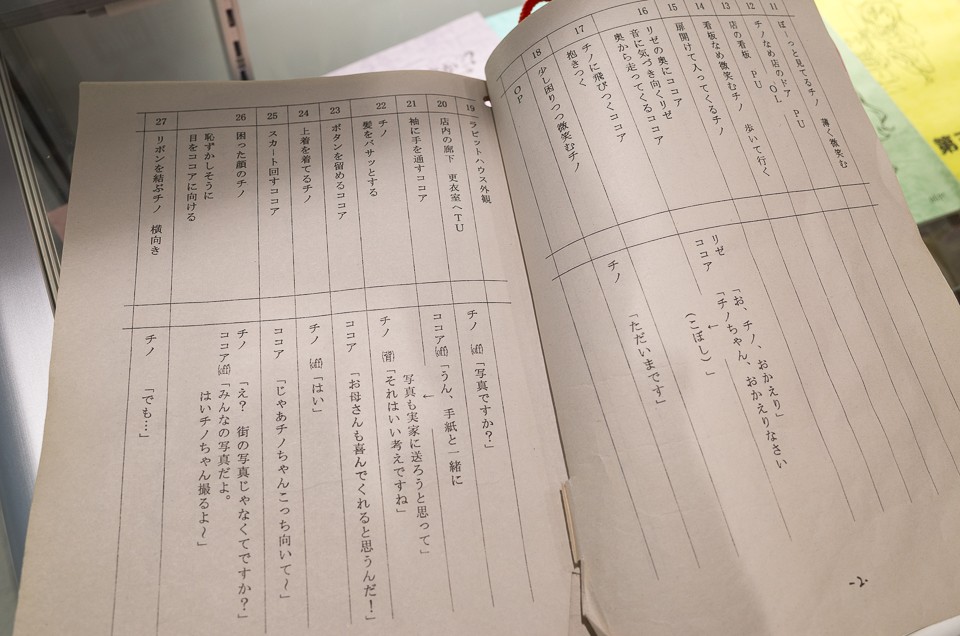 11
ぼーっと見てるチノ　薄く微笑む
12
チノなめ店のドア　PU
13
店の看板　PU　歩いて行く
14
看板なめ微笑むチノ
15
扉開けて入ってくるチノ
16
リゼの奥にココア
音に気づき向くリゼ
奥から走ってくるココア
リゼ　「お、チノ、おかえり」
ココア　「チノちゃん、おかえりなさい
←
（こぼし）」
17
チノに飛びつくココア
抱きつく
18
少し困りつつ微笑むチノ
チノ　「ただいまです」
OP
-2-
19
ラビットハウス外観
チノ　off「写真ですか？」
20
店内の廊下　更衣室へTU
ココアoff「うん、手紙と一緒に
←
21
袖に手を通すココア
写真も実家に送ろうと思って」
22
チノ
髪をバサッとする
チノ　（背）「それはいい考えですね」
23
ボタンを留めるココア
ココア　「お母さんも喜んでくれると思うんだ！」
24
上着を着てるチノ
チノ　off「はい」
25
スカート回すココア
ココア　「じゃあチノちゃんこっち向いて～」
26
困った顔のチノ
恥ずかしそうに
目をココアに向ける
チノ　「え？　街の写真じゃなくてですか？」
ココアoff「みんなの写真だよ。
はいチノちゃん撮るよ～」
27
リボンを結ぶチノ　横向き
チノ　「でも…」